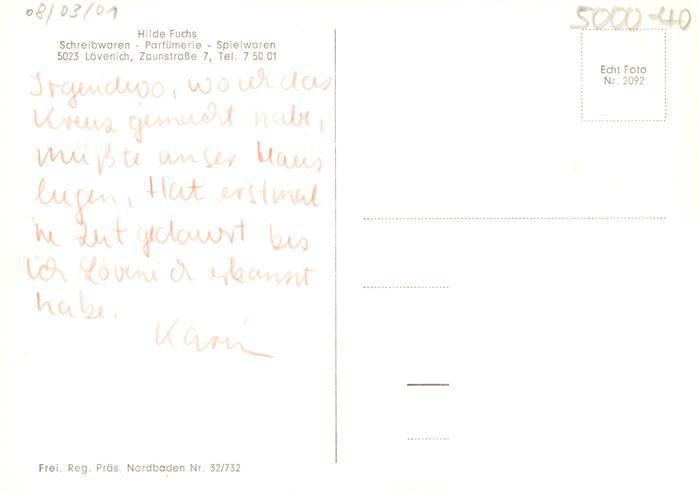 08/03/01
5000-40
Hilde Fuchs
Schreibwaren - Parfümerie - Spielwaren
5023 Lövenich, Zaunstraße 7, Tel. 7 50 01
Echt Foto
Nr. 2092
Irgendwo, wo ich das
Kreuz gemacht habe,
müßte unser Haus
liegen, Hat erstmal
ne Zeit gedauert bis
ich Lövenich erkannt
habe.
Karin
Frei, Reg. Präs, Nordbaden Nr. 32/732